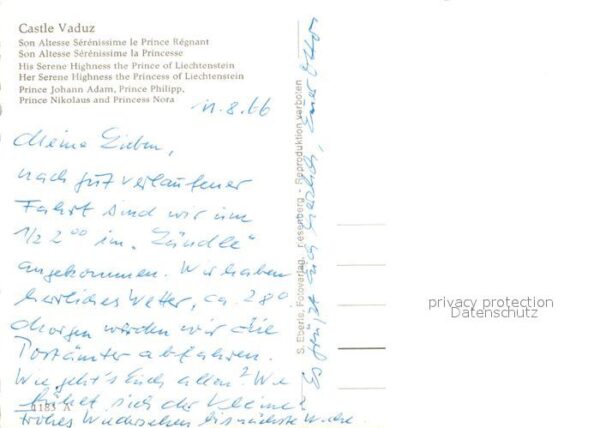 Castle Vaduz
Son Altesse Sérénissime le Prince Régnant
Son Altesse Sérénissime la Princesse
His Serene Highness the Prince of Liechtenstein
Her Serene Highness the Princess of Liechtenstein
Prince Johann Adam, Prince Philipp,
Prince Nikolaus and Princess Nora
11.8.66
Meine Lieben,
nach gut verlaufener
Fahrt sind wir um
1/2 2⁰⁰ im „Ländle“
angekommen. Wir haben
herrliches Wetter, ca. 28⁰.
Morgen werden wir die
Postämter abfahren.
Wie geht's Euch allen? Wie
fühlt sich der Kleine?
Frohes Wiedersehen bis nächste Woche.
Es grüßt Euch herzlich, Euer Otto
S. Eberle, Fotoverlag, Triesenberg - Reproduktion verboten
4183 A
privacy protection
Datenschutz